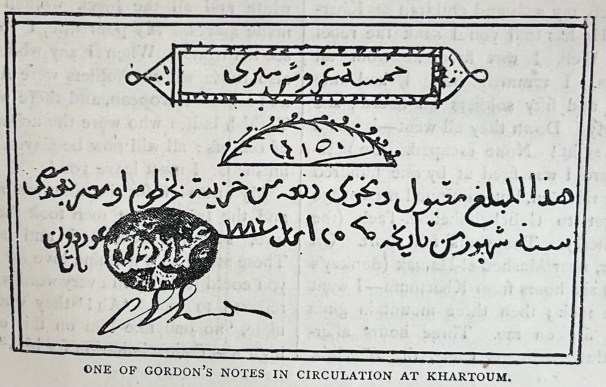 خمسة غروش ميري
١٤١٥٠
هذا المبلغ مقبول ويجري دفعه من خزينة الخرطوم او مصر بعد مضي
ستة شهور من تاريخه ٢٥ ابريل ١٨٨٤ غوردون
باشا
ONE OF GORDON'S NOTES IN CIRCULATION AT KHARTOUM.